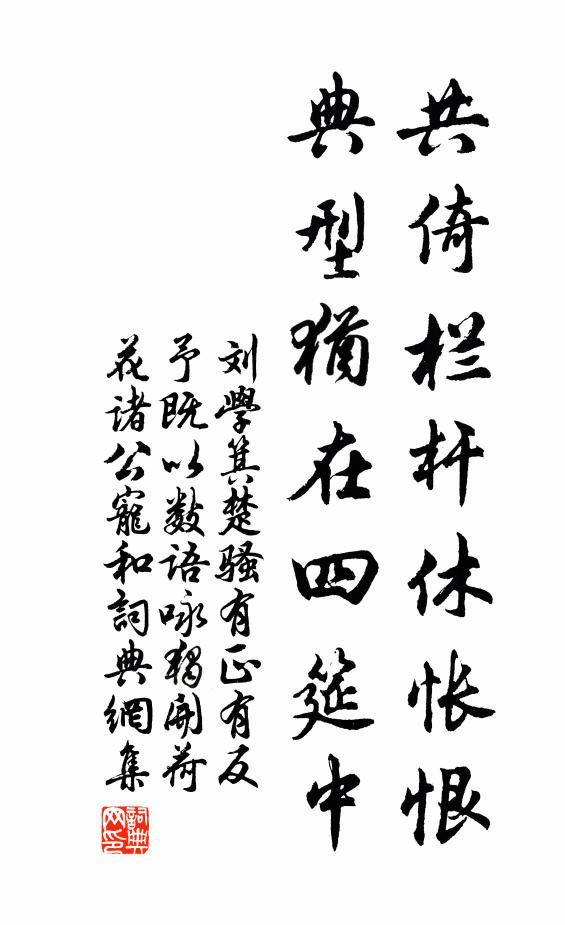 共倚栏杆休怅恨
典型犹在四筵中
刘学箕楚骚有正有反
予既以数语咏独开荷
花诸公寵和詞典網集
詞典网印